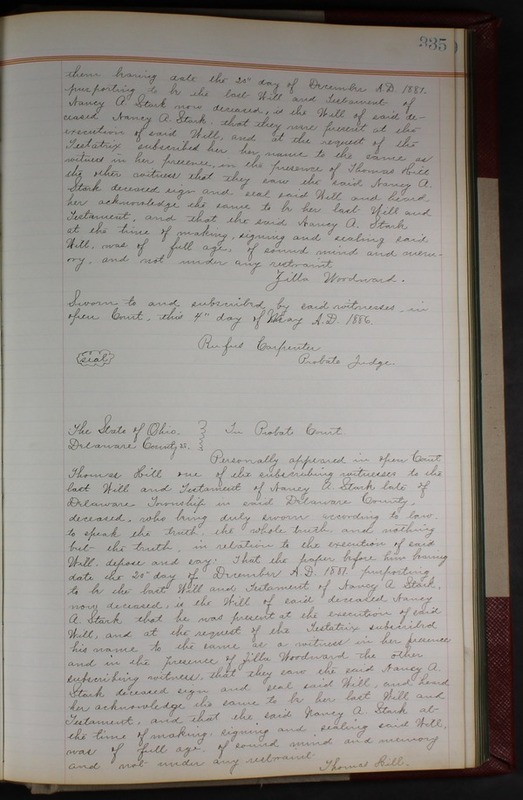 335
them having date the 20" day of December A.D. 1881.
purporting to be the last Will and Testament of
Nancy A Stark now deceased, is the Will of said de-
ceased Nancy A. Stark. that they were present at the
execution of said Will, and at the request of the
Testatrix subscribed her name to the same as
witness in her presence, in the presence of Thomas Hill
the other witness that they saw the said Nancy A.
Stark deceased sign and seal said Will and heard
her acknowledge the same to be her last Will and
Testament, and that the said Nancy A. Stark
at the time of making, signing and sealing said
Will, was of full age, of sound mind and mem-
ory, and not under any restraint
Zilla Woodward.
Sworn to and subscribed by said witnesses in
open Court, this 4" day of May A.D. 1886.
Rufus Carpenter
seal Probate Judge.
The State of Ohio. } In Probat Court
Delaware County ss. }
Personally appeared in open Court
Thomas Hill one of the subscribing witnesses to the
last Will and Testament of Nancy A Stark late of
Delaware Township in said Delaware County,
deceased, who being duly sworn according to law
to speak the truth, the whole truth and nothing
but the truth, in relation to the execution of said
Will, depose and say. That the paper before him having
date the 20" day of December A.D. 1881. purporting
to be the last Will and Testament of Nancy A Stark,
now deceased, is the Will of said deceased Nancy
A. Stark that he was present at the execution of said
Will, and at the request of the Testatrix subscribed
his name to the same as a witness in her presence
and in the presence of Zilla Woodward the other
subscribing witness. that they saw the said Nancy A.
Stark deceased sign and seal said Will, and heard
her acknowledge the same to be her last Will and
Testament, and that the said Nancy A. Stark at
the time of making, signing and sealing said Will,
was of full age, of sound mind and memory
and not under any restraint
Thomas Hill.